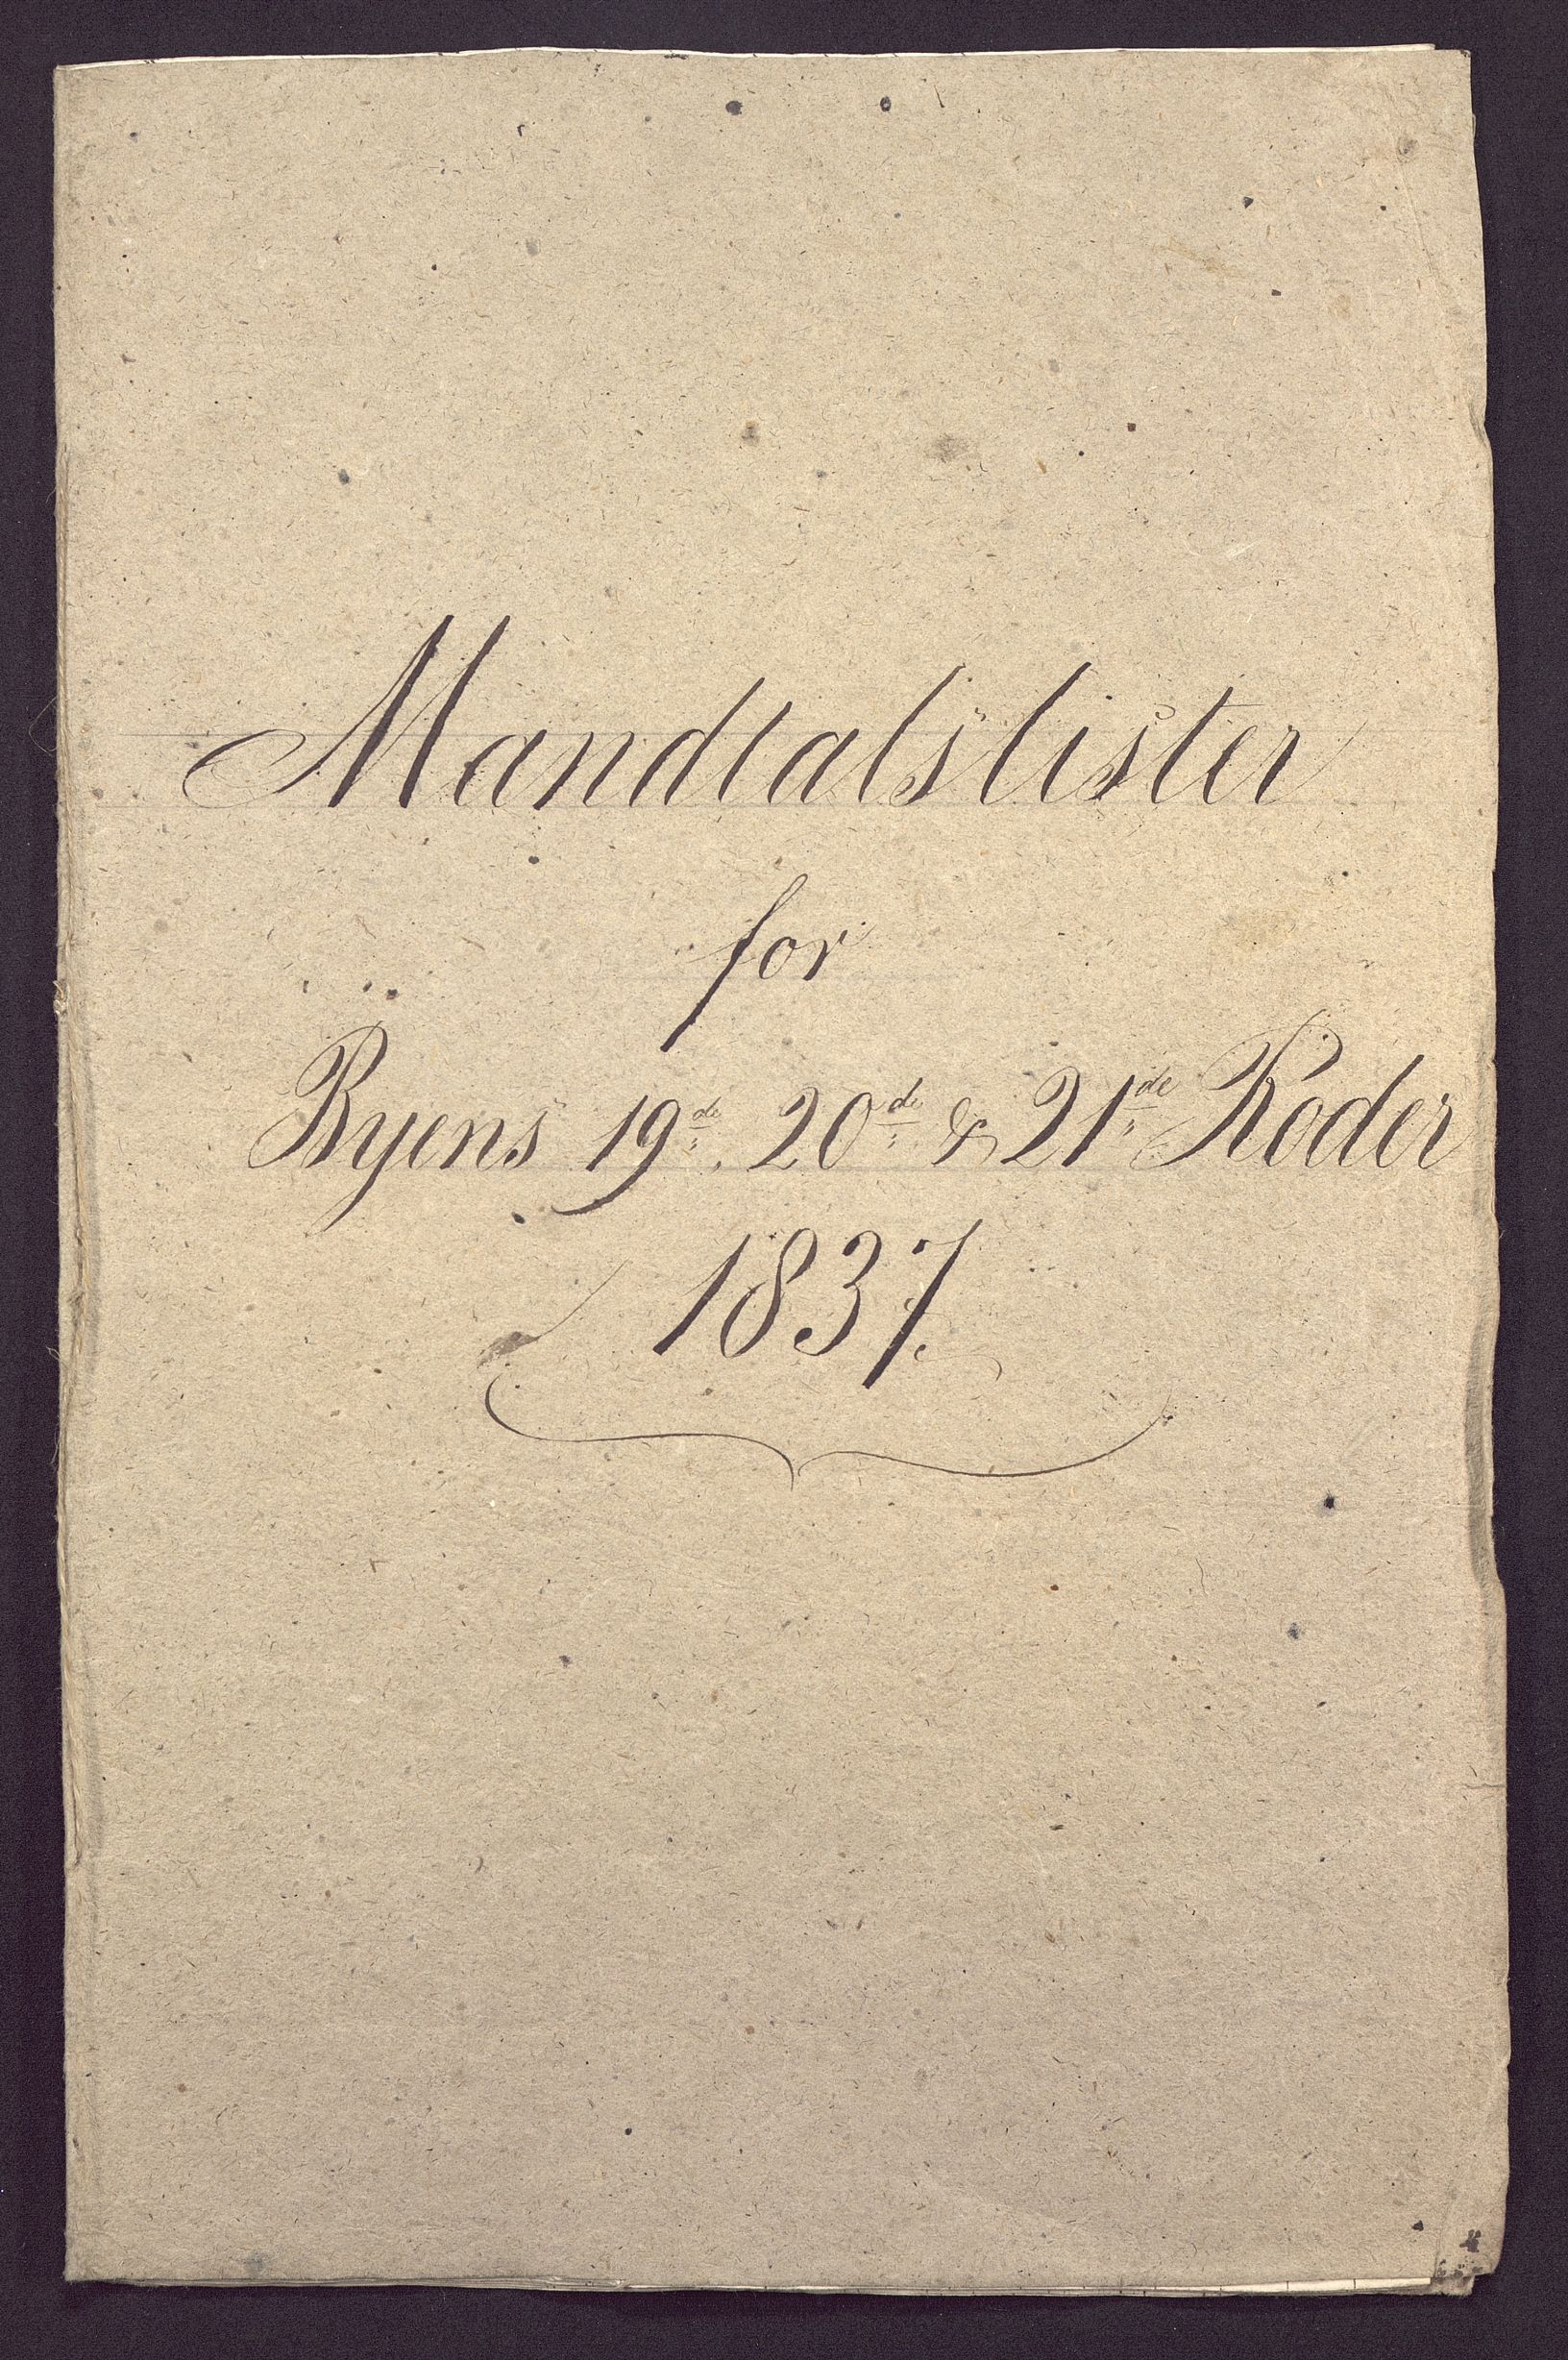 Mandtalslister
for
Byens 19de. 20de & 21de Roder
1837.